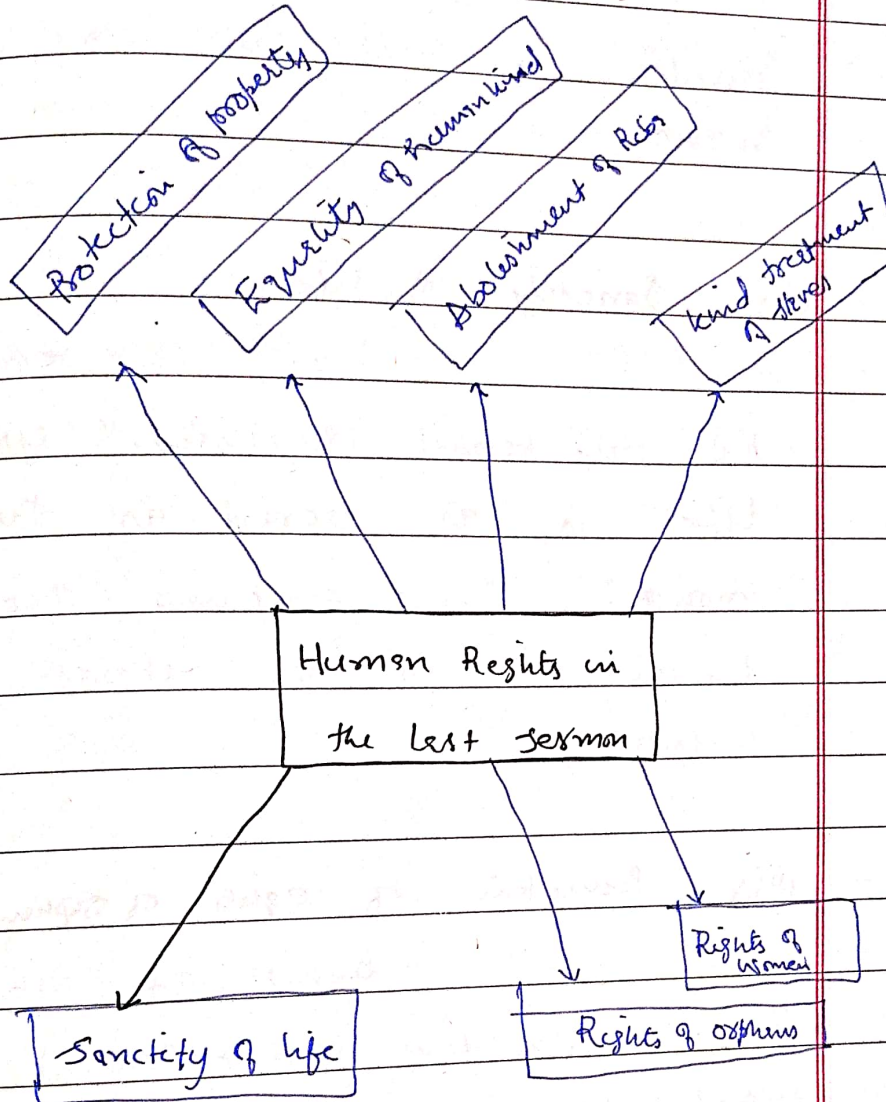 Protection of property
Equality of humankind
Abolishment of Raba
Kind treatment
of slaves
Human Rights in
the last sermon
Rights of
women
Rights of orphans
Sanctity of life